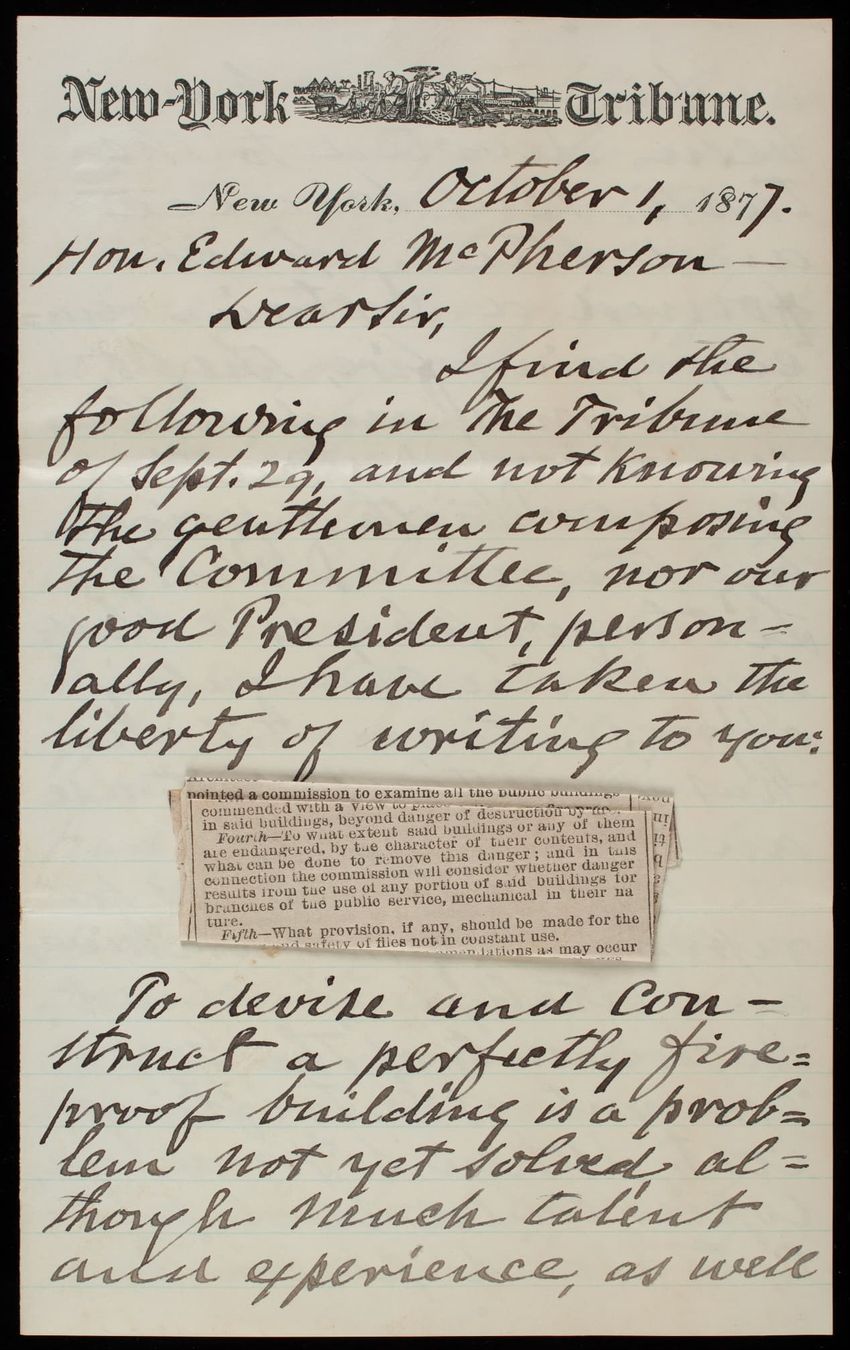 New-York Tribune.
New York, October 1, 1877.
Hon. Edward McPherson —
Dear Sir,
I find the
following in The Tribune
of Sept. 29, and not Knowing
the gentlemen composing
the Committee, nor our
good President, person-
ally, I have taken the
liberty of writing to you:
pointed a commission to examine all the public buildings
commended with a view to
in said buildings, beyond danger of destruction by
Fourth—To what extent said buildings or any of them
are endangered, by the character of their contents, and
what can be done to remove this danger; and in this
connection the commission will consider whether danger
results from the use of any portion of said buildings for
branches of the public service, mechanical in their na
ture.
Fifth—What provision, if any, should be made for the
and safety of files not in constant use.
as may occur
To devise and Con-
struct a perfectly fire=
proof building is a prob=
lem not yet solved, al=
though much talent
and experience, as well